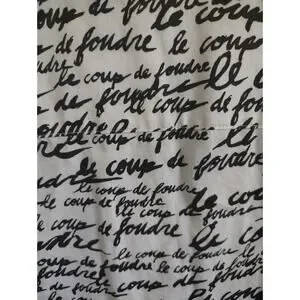 le coup
de foudre le coup
de foudre le coup
le coup de foudre le
coup de foudre
foudre le
le coup de foudre
le coup de foudre
le coup de foudre le cou
le coup de foudre
coup de foudre
coup de foudre
le coup de foudre le
foudre le coup de foudre
le coup de foudre